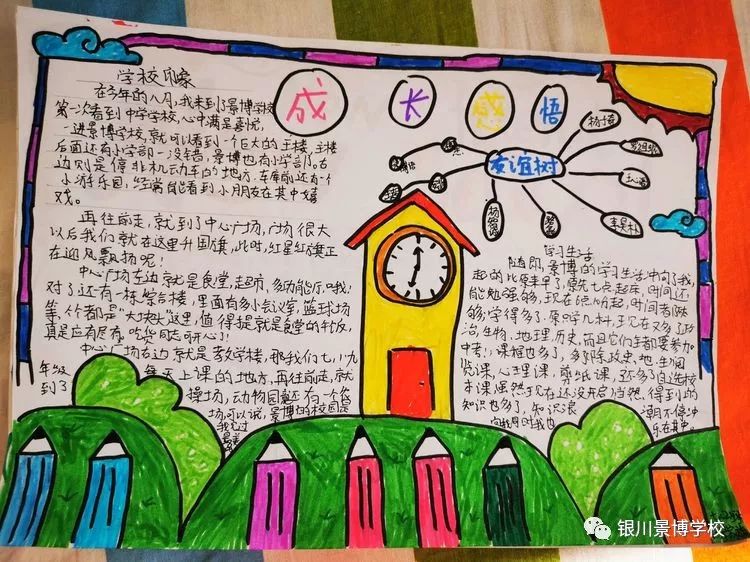 学校印象
在今年的八月,我来到了景博学校
第一次看到中学学校,心中满是喜悦,
一进景博学校,就可以看到一个巨大的主楼,主楼
后面还有小学部一没错,景博也有小学部。右
边则是停非机动车的地方.车库前还有一个
小游乐园,经常能看到小朋友在其中嬉
戏。
再往前走,就到了中心广场,广场很大
以后我们就在这里升国旗,此时,红星红旗正
在迎风飘扬呢!
中心广场左边就是食堂,超市,多功能厅,哦,
对了还有一栋综合楼,里面有多小会议室,篮球场
等,什都是"大块头"这里,值得提就是食堂的午饭,
真是应有尽有,吃货同志可开心了!
中心广场右边就是教学楼,那我们七,八,九
年级每天上课的地方,再往前走,就
到了操场,动物园,还有一个
场,可以说,景博的校园是
我见过
成长感悟
友谊树
杨
李昊
学习生活
随即,景博的学习生活冲向了我,
起的比原来早了,原先七点起床,时间还
能勉强够,现在六点价起,时间有限
够;学得多了,原学几科,现在又多了政
治,生物,地理,历史,而且它们全都要参加
中考;课程也多了,多了除政,史,地,生,阅
览课,心理课,剪纸课,还多了自选校
本课虽然现在还没开启,当然,得到的
知识也多了,知识浪
向我,同时我也
乐在其中。
银川景博学校